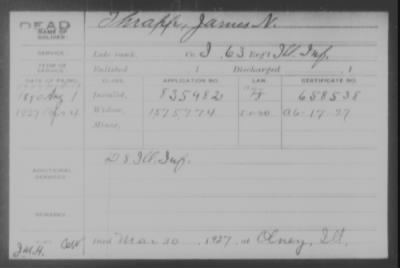 DEAD
Thrapp, James N.
NAME OF SOLDIER:
SERVICE: Late rank, Co I, 63 Reg't Ill. Inf.
TERM OF SERVICE: Enlisted , 1 Discharged , 1
DATE OF FILING. CLASS. APPLICATION NO. LAW. CERTIFICATE NO.
1890 Aug 1 Invalid, 835482 658538
1927 Apr 4 Widow, 1575774 a6-17-27
Minor,
ADDITIONAL SERVICES: D 8 Ill. Inf.
REMARKS:
J.M.H. C&W Died Mar 20, 1927, at Olney, Ill.